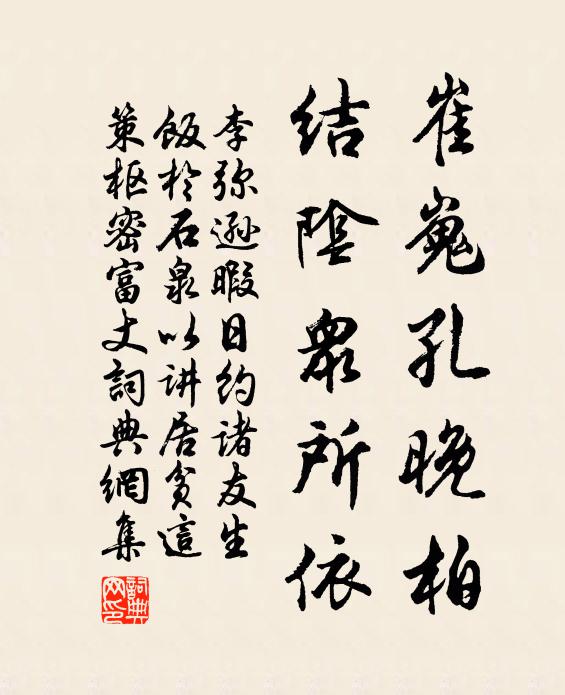 崔嵬孔晚柏
结阴众所依
李弥逊暇日约诸友生
饭于石泉以讲居贫这
策枢密富文词典网集
词典网印